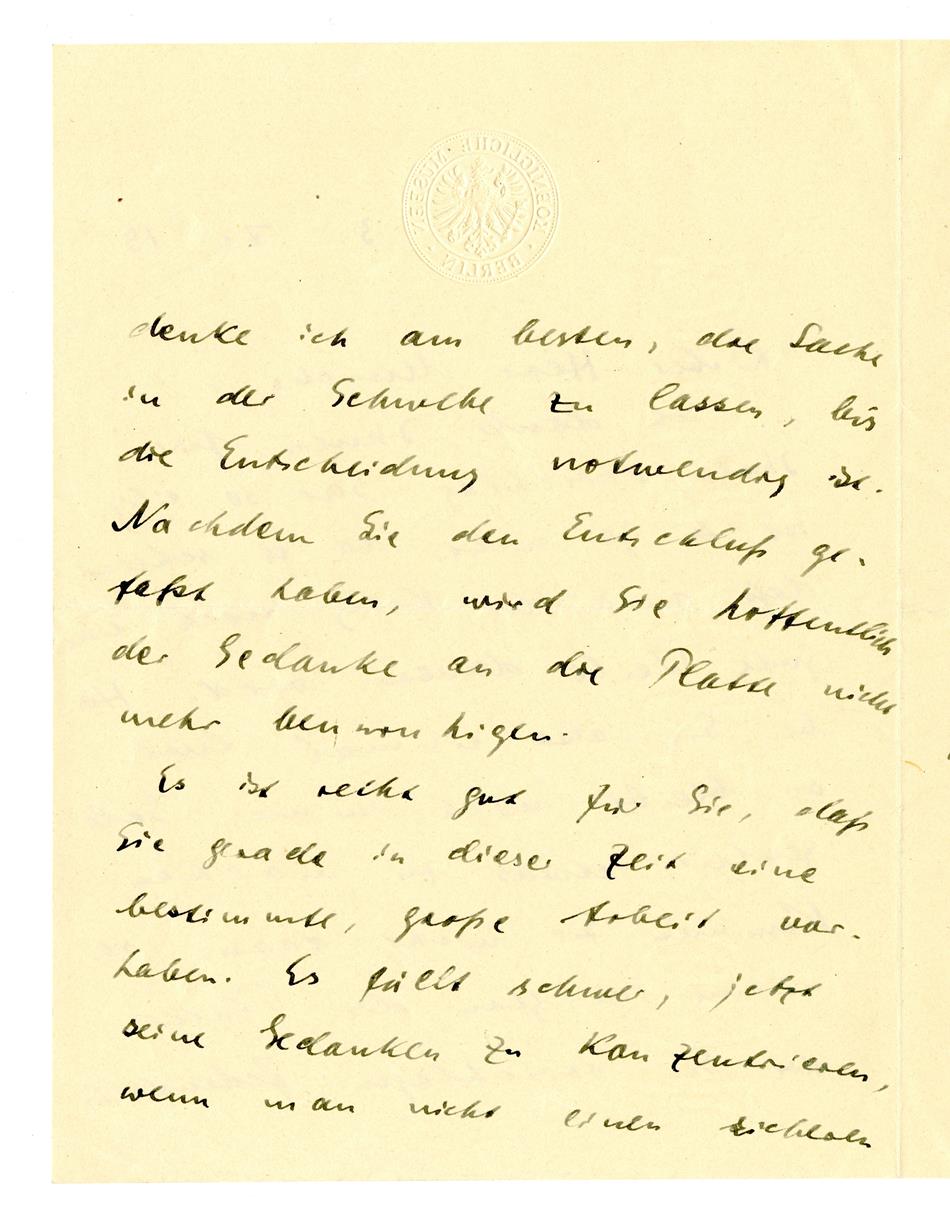 KOENIGLICHE MUSEEN
BERLIN
denke ich am besten, die Sache
in der Schwebe zu lassen, bis
die Entscheidung notwendig ist.
Nachdem Sie den Entschluß ge-
faßt haben, wird Sie hoffentlich
der Gedanke an die Platte nicht
mehr beunruhigen.
Es ist recht gut für Sie, daß
Sie gerade in dieser Zeit eine
bestimmte, große Arbeit vor-
haben. Es fällt schwer, jetzt
seine Gedanken zu konzentrieren,
wenn man nicht einen sicheren